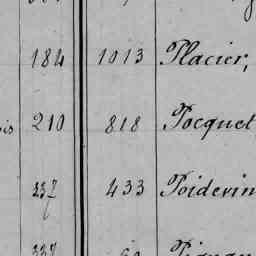 184 1013 Placier,
is 210 818 Pocquet
337 433 Poidevin
337